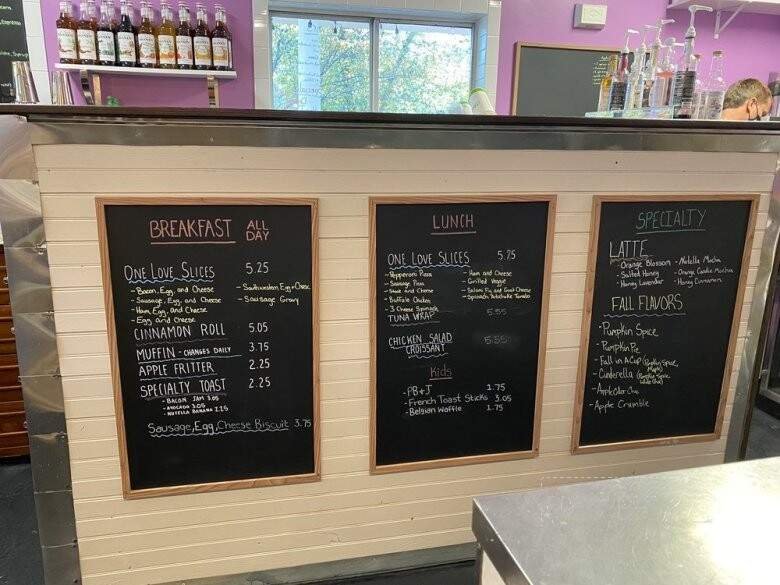 BREAKFAST ALL DAY
ONE LOVE SLICES 5.25
- Bacon, Egg, and Cheese
- Sausage, Egg, and Cheese
- Ham, Egg, and Cheese
- Egg and Cheese
- Southwestern Egg + Cheese
- Sausage Gravy
CINNAMON ROLL 5.05
MUFFIN - CHANGES DAILY 3.75
APPLE FRITTER 2.25
SPECIALTY TOAST 2.25
- BACON JAM 3.05
- AVOCADO 3.05
- NUTELLA BANANA 2.25
Sausage, Egg, Cheese Biscuit 3.75
LUNCH
ONE LOVE SLICES 5.75
- Pepperoni Pizza
- Sausage Pizza
- Steak and Cheese
- Buffalo Chicken
- 3 Cheese Spinach
- Ham and Cheese
- Grilled Veggie
- Salami Fig and Goat Cheese
- Spinach Artichoke Tomato
TUNA WRAP 5.55
CHICKEN SALAD CROISSANT 5.55
Kids
- PB+J 1.75
- French Toast Sticks 3.05
- Belgian Waffle 1.75
SPECIALTY
LATTE
- Orange Blossom
- Salted Honey
- Honey Lavender
- Nutella Mocha
- Orange Mocha
- Honey Cinnamon
FALL FLAVORS
- Pumpkin Spice
- Pumpkin Pie
- Fall in A Cup (Pumpkin Spice, Maple)
- Cinderella (Pumpkin Spice, White Choc)
- Apple Cider Chai
- Apple Crumble